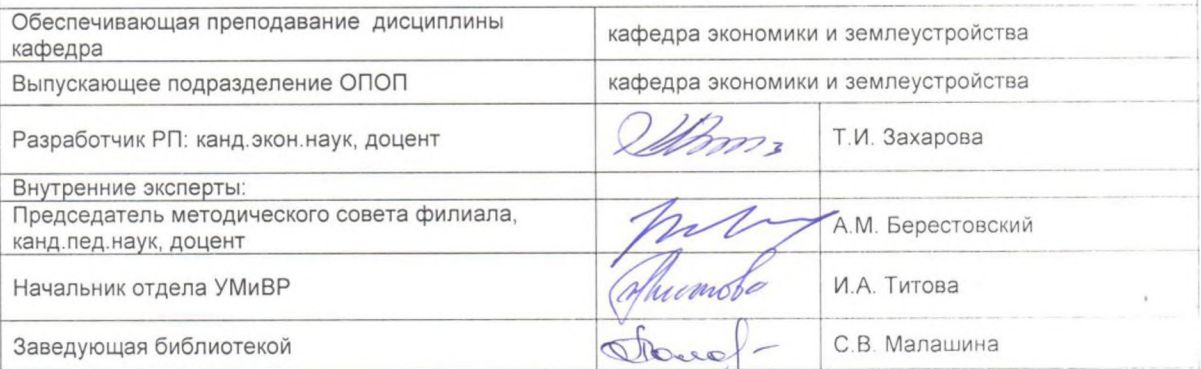 Обеспечивающая преподавание дисциплины
кафедра
кафедра экономики и землеустройства
Выпускающее подразделение ОПОП
кафедра экономики и землеустройства
Разработчик РП: канд.экон.наук, доцент
Т.И. Захарова
Внутренние эксперты:
Председатель методического совета филиала,
канд.пед.наук, доцент
А.М. Берестовский
Начальник отдела УМиВР
И.А. Титова
Заведующая библиотекой
С.В. Малашина